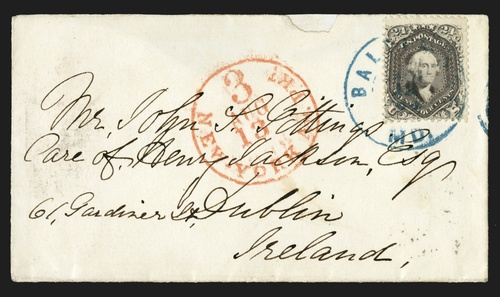 24 U.S. POSTAGE 24
BALT
MD.
3
NEW YORK
AUG
13
PKT
Mr. John S. Gittings
Care of Henry Jackson, Esq
61, Gardiner St, Dublin
Ireland,